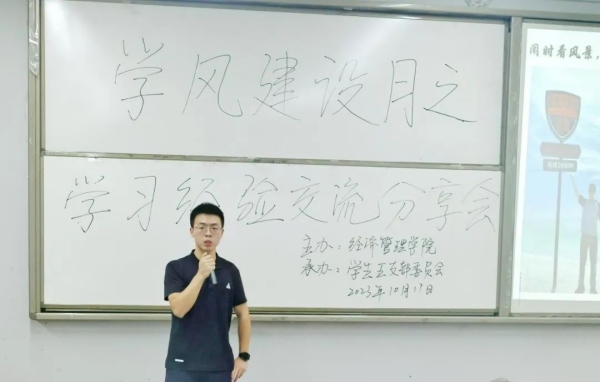 学风建设月之
学习经验交流分享会
主办：经济管理学院
承办：学生五支部委员会
2023年10月17日
闲时看风景，